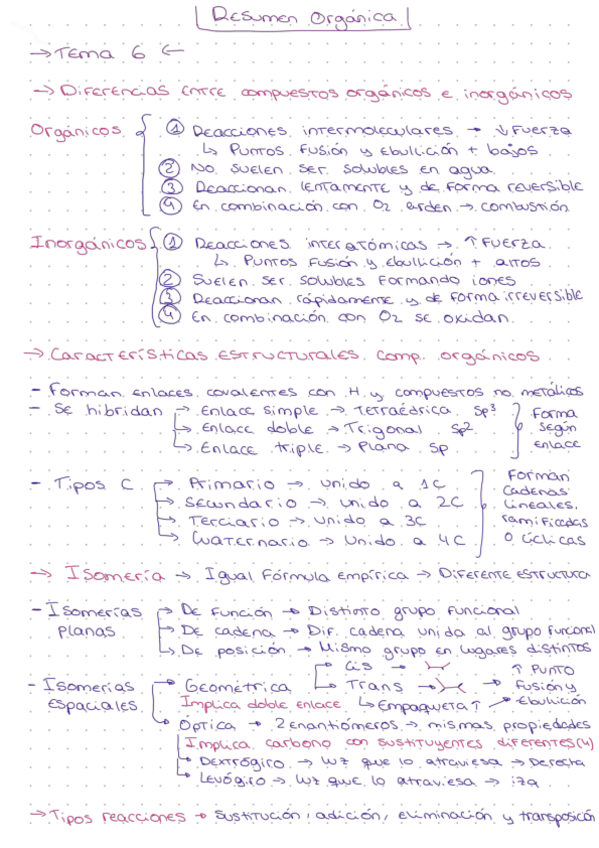 Resumen Orgánica
→ Tema 6 ←
→ Diferencias entre compuestos orgánicos e inorgánicos
Orgánicos { ① Reacciones intermoleculares → ↓ Fuerza
↳ Puntos fusión y ebullición + bajos
② No suelen ser solubles en agua
③ Reaccionan lentamente y de forma reversible
④ En combinación con O2 arden → combustión
Inorgánicos { ① Reacciones interatómicas → ↑ Fuerza
↳ Puntos fusión y ebullición + altos
② Suelen ser solubles formando iones
③ Reaccionan rápidamente y de forma irreversible
④ En combinación con O2 se oxidan
→ Características estructurales comp. orgánicos
- Forman enlaces covalentes con H y compuestos no metálicos
- Se hibridan → Enlace simple → Tetraédrica sp3 } Forma
→ Enlace doble → Trigonal sp2 según
↳ Enlace triple → Plana sp enlace
- Tipos C → Primario → unido a 1C } Forman
→ Secundario → unido a 2C cadenas
→ Terciario → unido a 3C lineales,
↳ Cuaternario → Unido a 4C ramificadas
o cíclicas
→ Isomería → Igual fórmula empírica → Diferente estructura
- Isomerías planas → De función → Distinto grupo funcional
→ De cadena → Dif. cadena unida al grupo funcional
↳ De posición → Mismo grupo en lugares distintos
- Isomerías espaciales → Geométrica → Cis →
↳ Trans → → ↑ Punto fusión y ebullición
Implica doble enlace ↳ Empaqueta ↑
→ Óptica → 2 enantiómeros → mismas propiedades
Implica carbono con sustituyentes diferentes (4)
→ Dextrógiro → luz que lo atraviesa → Derecha
↳ Levógiro → luz que lo atraviesa → izq
→ Tipos reacciones → Sustitución, adición, eliminación y transposición